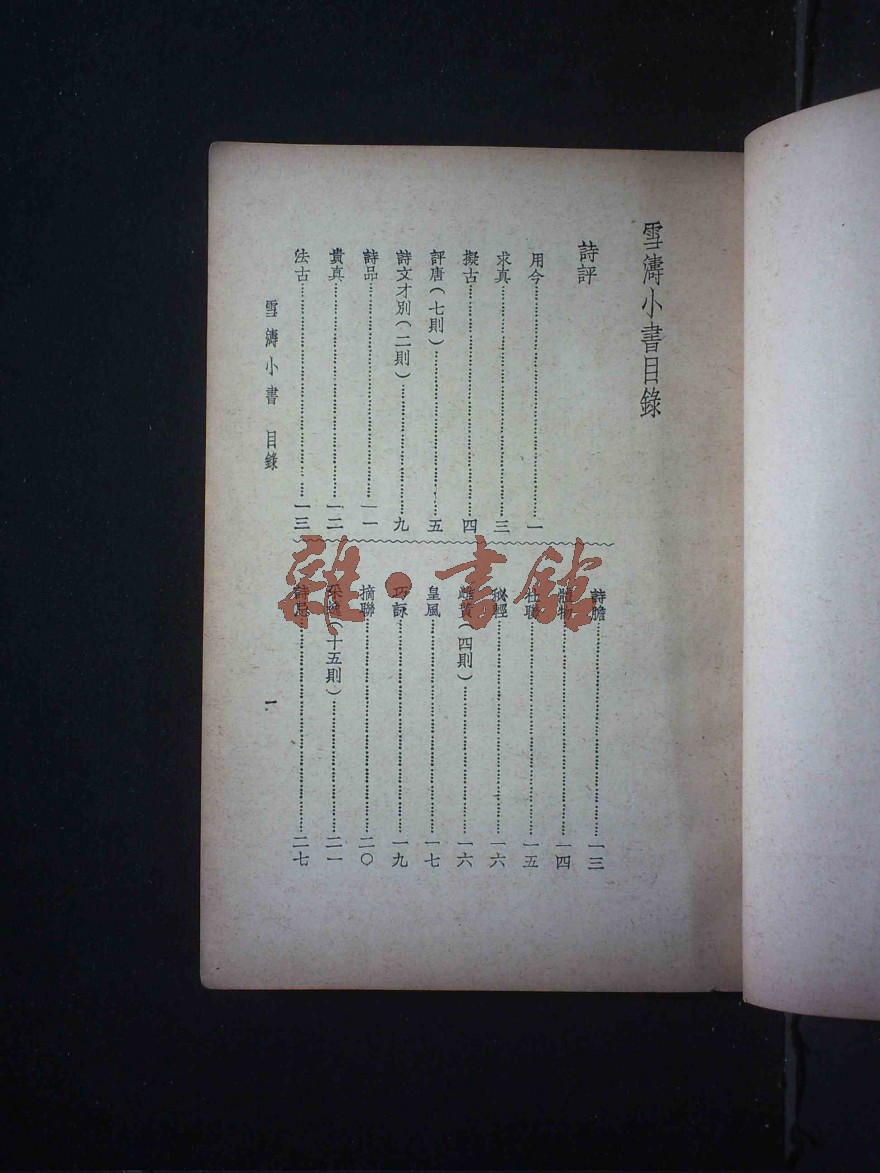 雪濤小書目錄
詩評
用今…………一
求真…………三
擬古…………四
評唐（七則）…………五
詩文才別（二則）…………九
詩品…………一一
貴真…………一二
法古…………一三
詩膽…………一三
體物…………一四
杜聯…………一五
秘輕…………一六
雌黃（四則）…………一六
皇風…………一七
巧詠…………一九
摘聯…………二〇
采逸（十五則）…………二一
詩忌…………二七
雪濤小書 目錄
一
雜·書館